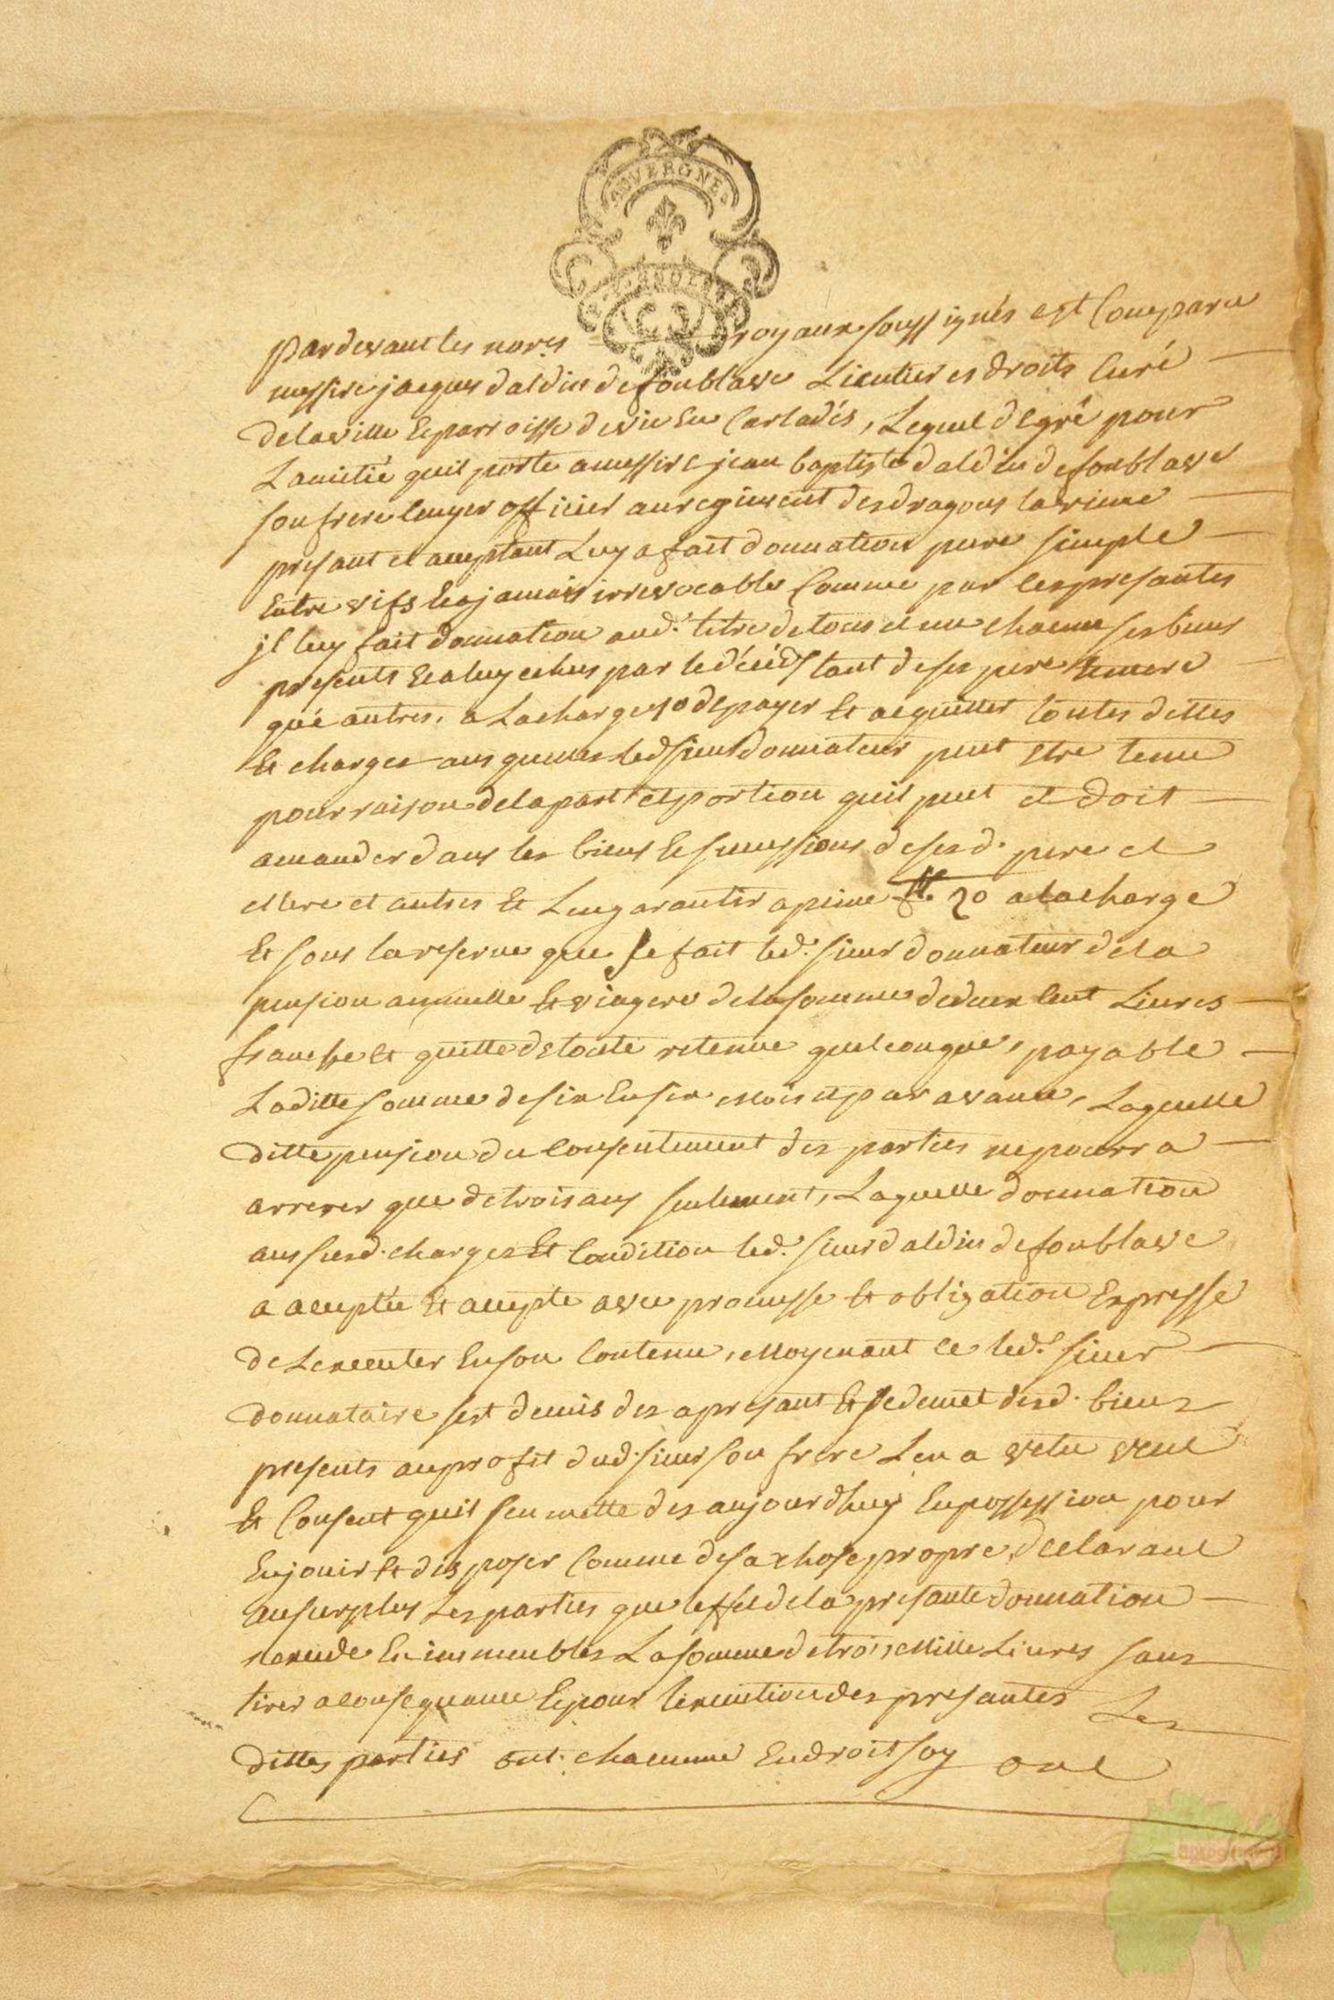 AUVERGNE
pardevant les nores royaux soussignés est Comparu
messire jacques daldin defonblave Licentier es droits Curé
de la ville & parroisse de vic En Carladés, Lequel de gré pour
L'amitié quil porte a messire jean baptiste daldin de fonblave
son frere Ecuyer officier au regiment des dragons
presant et acceptant Luy a fait donnation pure simple
Entre vifs & a jamais irrevocable Comme par les presantes
jl luy fait donnation aud. titre de tous et un chacun ses biens
presents & a luy echus par le décéds tant de ses pere & mere
qué autres, a La charge 1o de payer & acquitter toutes dettes
& charges aus quelles led sieur donnateur peut Etre tenu
pour raison de la part et portion quil peut et doit
amander dans les biens & successions de sesd. pere et
Mere et autres & L'en garantir a peine 2o a la charge
& sous la reserve que se fait led. sieur donnateur de la
pension annuelle & viagere de la somme de deux Cent Livres
franche & quitte de toute retenue quelconque, payable
Laditte somme de six En six Mois et par avance, Laquelle
ditte pension du Consentement des parties ne pourra
arrerer que de trois ans seulement, Laquelle donnation
aus susd. charges & Condition led. sieur daldin de fonblave
a accepté & accepte avec promesse & obligation Expresse
de L'executer En son Contenu, Moyenant ce led. sieur
donnataire sest demis des apresant & se demet desd. biens
presents au profit dud. sieur son frere L'en a vetu veut
& Consent quil s'en mette des aujourdhuy En possession pour
En jouir & disposer Comme de sa chose propre, declarant
au surplus Les parties que l'effet de la presante donnation
n'excede En immeubles La somme de trois Mille Livres sans
tirer a consequance & pour l'execution des presantes Les
dittes parties ont chacunne En droit soy ont